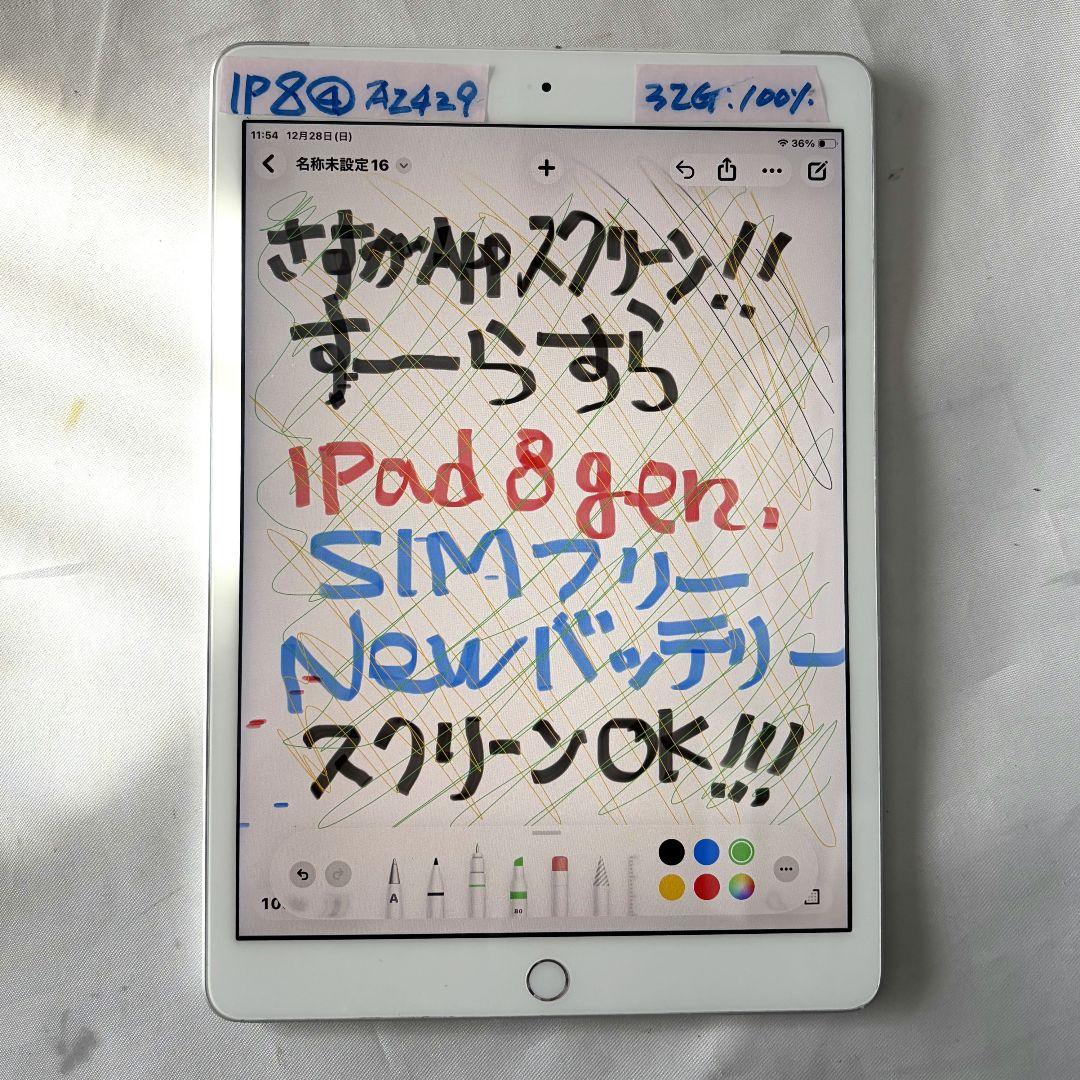 IP8④ A2429
32G:100%
11:54 12月28日(日)
36%
名称未設定16
さすがAppスクリーン!!
すーらすら
IPad 8gen.
SIMフリー
Newバッテリー
スクリーンOK!!!
A
80